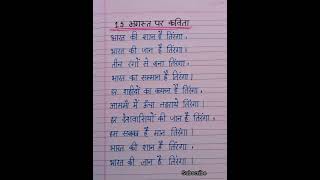 15 अगस्त पर कविता
भारत की शान है तिरंगा,
भारत की जान है तिरंगा।
तीन रंगों से बना तिरंगा,
भारत का सम्मान है तिरंगा।
हर शहीदों का कफन है तिरंगा,
आसमां में ऊँचा लहराये तिरंगा।
हर देशवासियों की जान है तिरंगा,
हम सबका है मान तिरंगा।
भारत की शान है तिरंगा,
भारत की जान है तिरंगा।
Subscribe